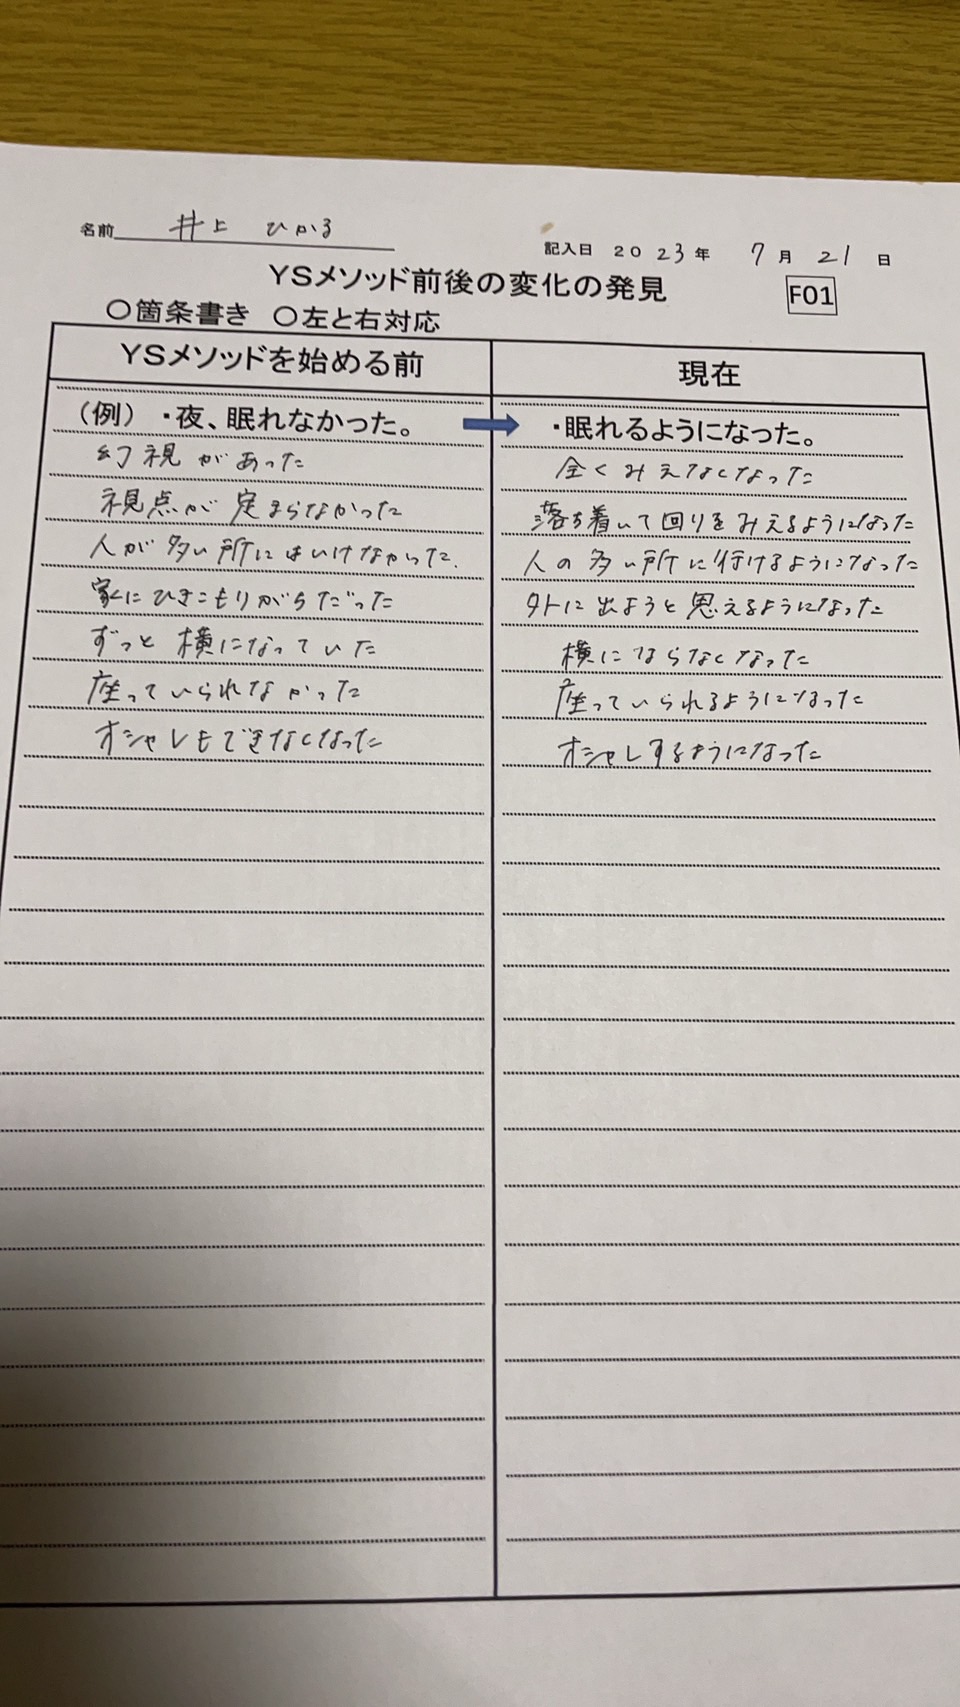 名前 井上 ひかる
記入日 2023年 7月 21日
YSメソッド前後の変化の発見 F01
〇箇条書き 〇左と右対応
YSメソッドを始める前 現在
(例) ・夜、眠れなかった。 ・眠れるようになった。
幻視があった 全くみえなくなった
視点が定まらなかった 落ち着いて回りをみえるようになった
人が多い所にはいけなかった. 人の多い所に行けるようになった
家にひきこもりがちだった 外に出ようと思えるようになった
ずっと横になっていた 横にならなくなった
座っていられなかった 座っていられるようになった
オシャレもできなくなった オシャレするようになった